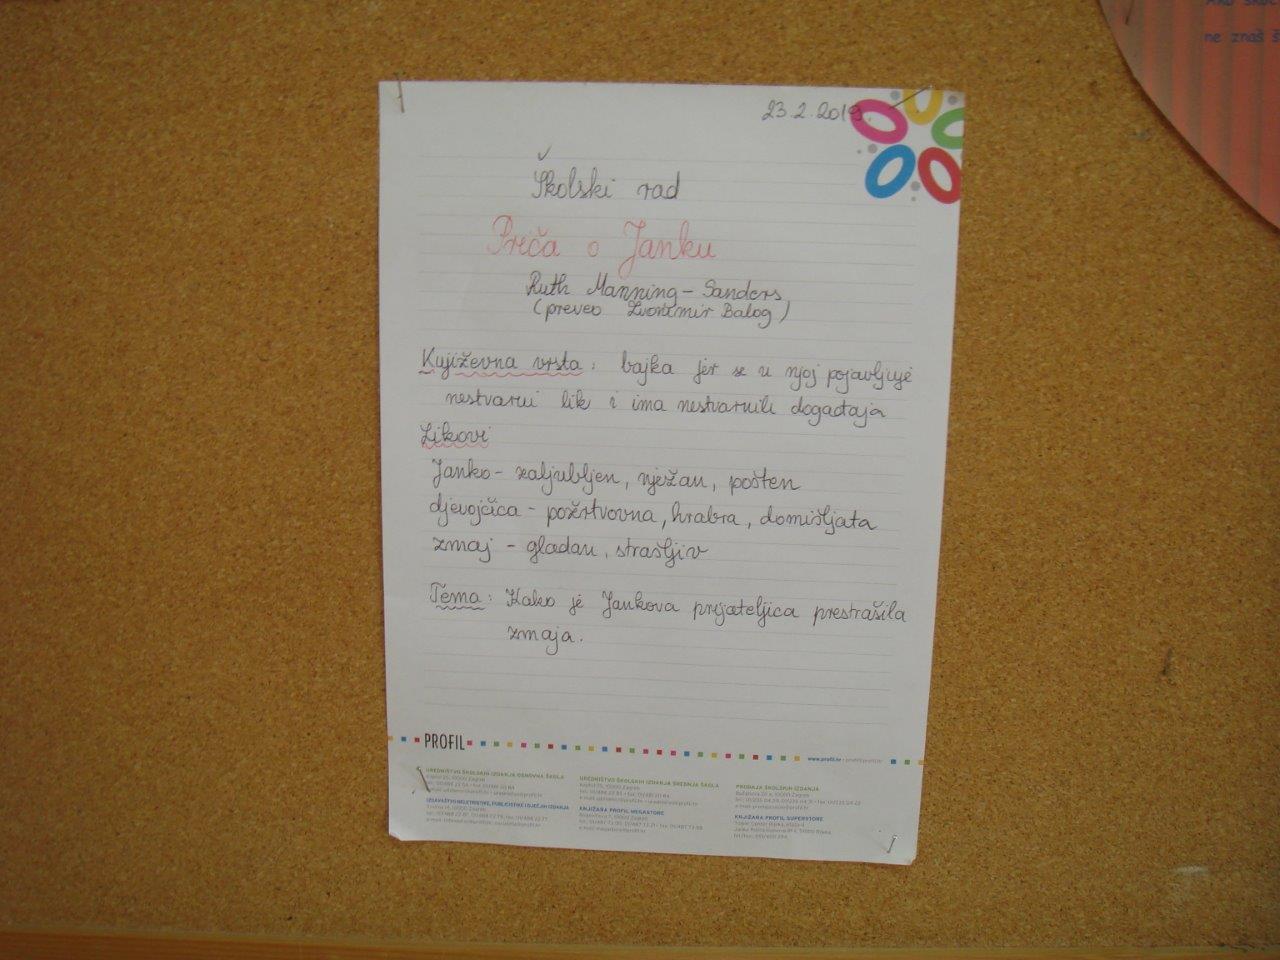 Ako skoč
ne znaš š
23.2.2019.
Školski rad
Priča o Janku
Ruth Manning-Sanders
(preveo Zvonimir Balog)
Književna vrsta: bajka jer se u njoj pojavljuje
nestvarni lik i ima nestvarnih događaja
Likovi
Janko - zaljubljen, nježan, pošten
djevojčica - požrtvovna, hrabra, domišljata
zmaj - gladan, strašljiv
Tema: Kako je Jankova prijateljica prestrašila
zmaja.
PROFIL
www.profil.hr
UREDNIŠTVO ŠKOLSKIH IZDANJA OSNOVNA ŠKOLA
IZDAVAŠTVO BELETRISTIKE, PUBLICISTIKE I DJEČJIH IZDANJA
UREDNIŠTVO ŠKOLSKIH IZDANJA SREDNJA ŠKOLA
KNJIŽARA PROFIL MEGASTORE
PRODAJA ŠKOLSKIH IZDANJA
KNJIŽARA PROFIL SUPERSTORE